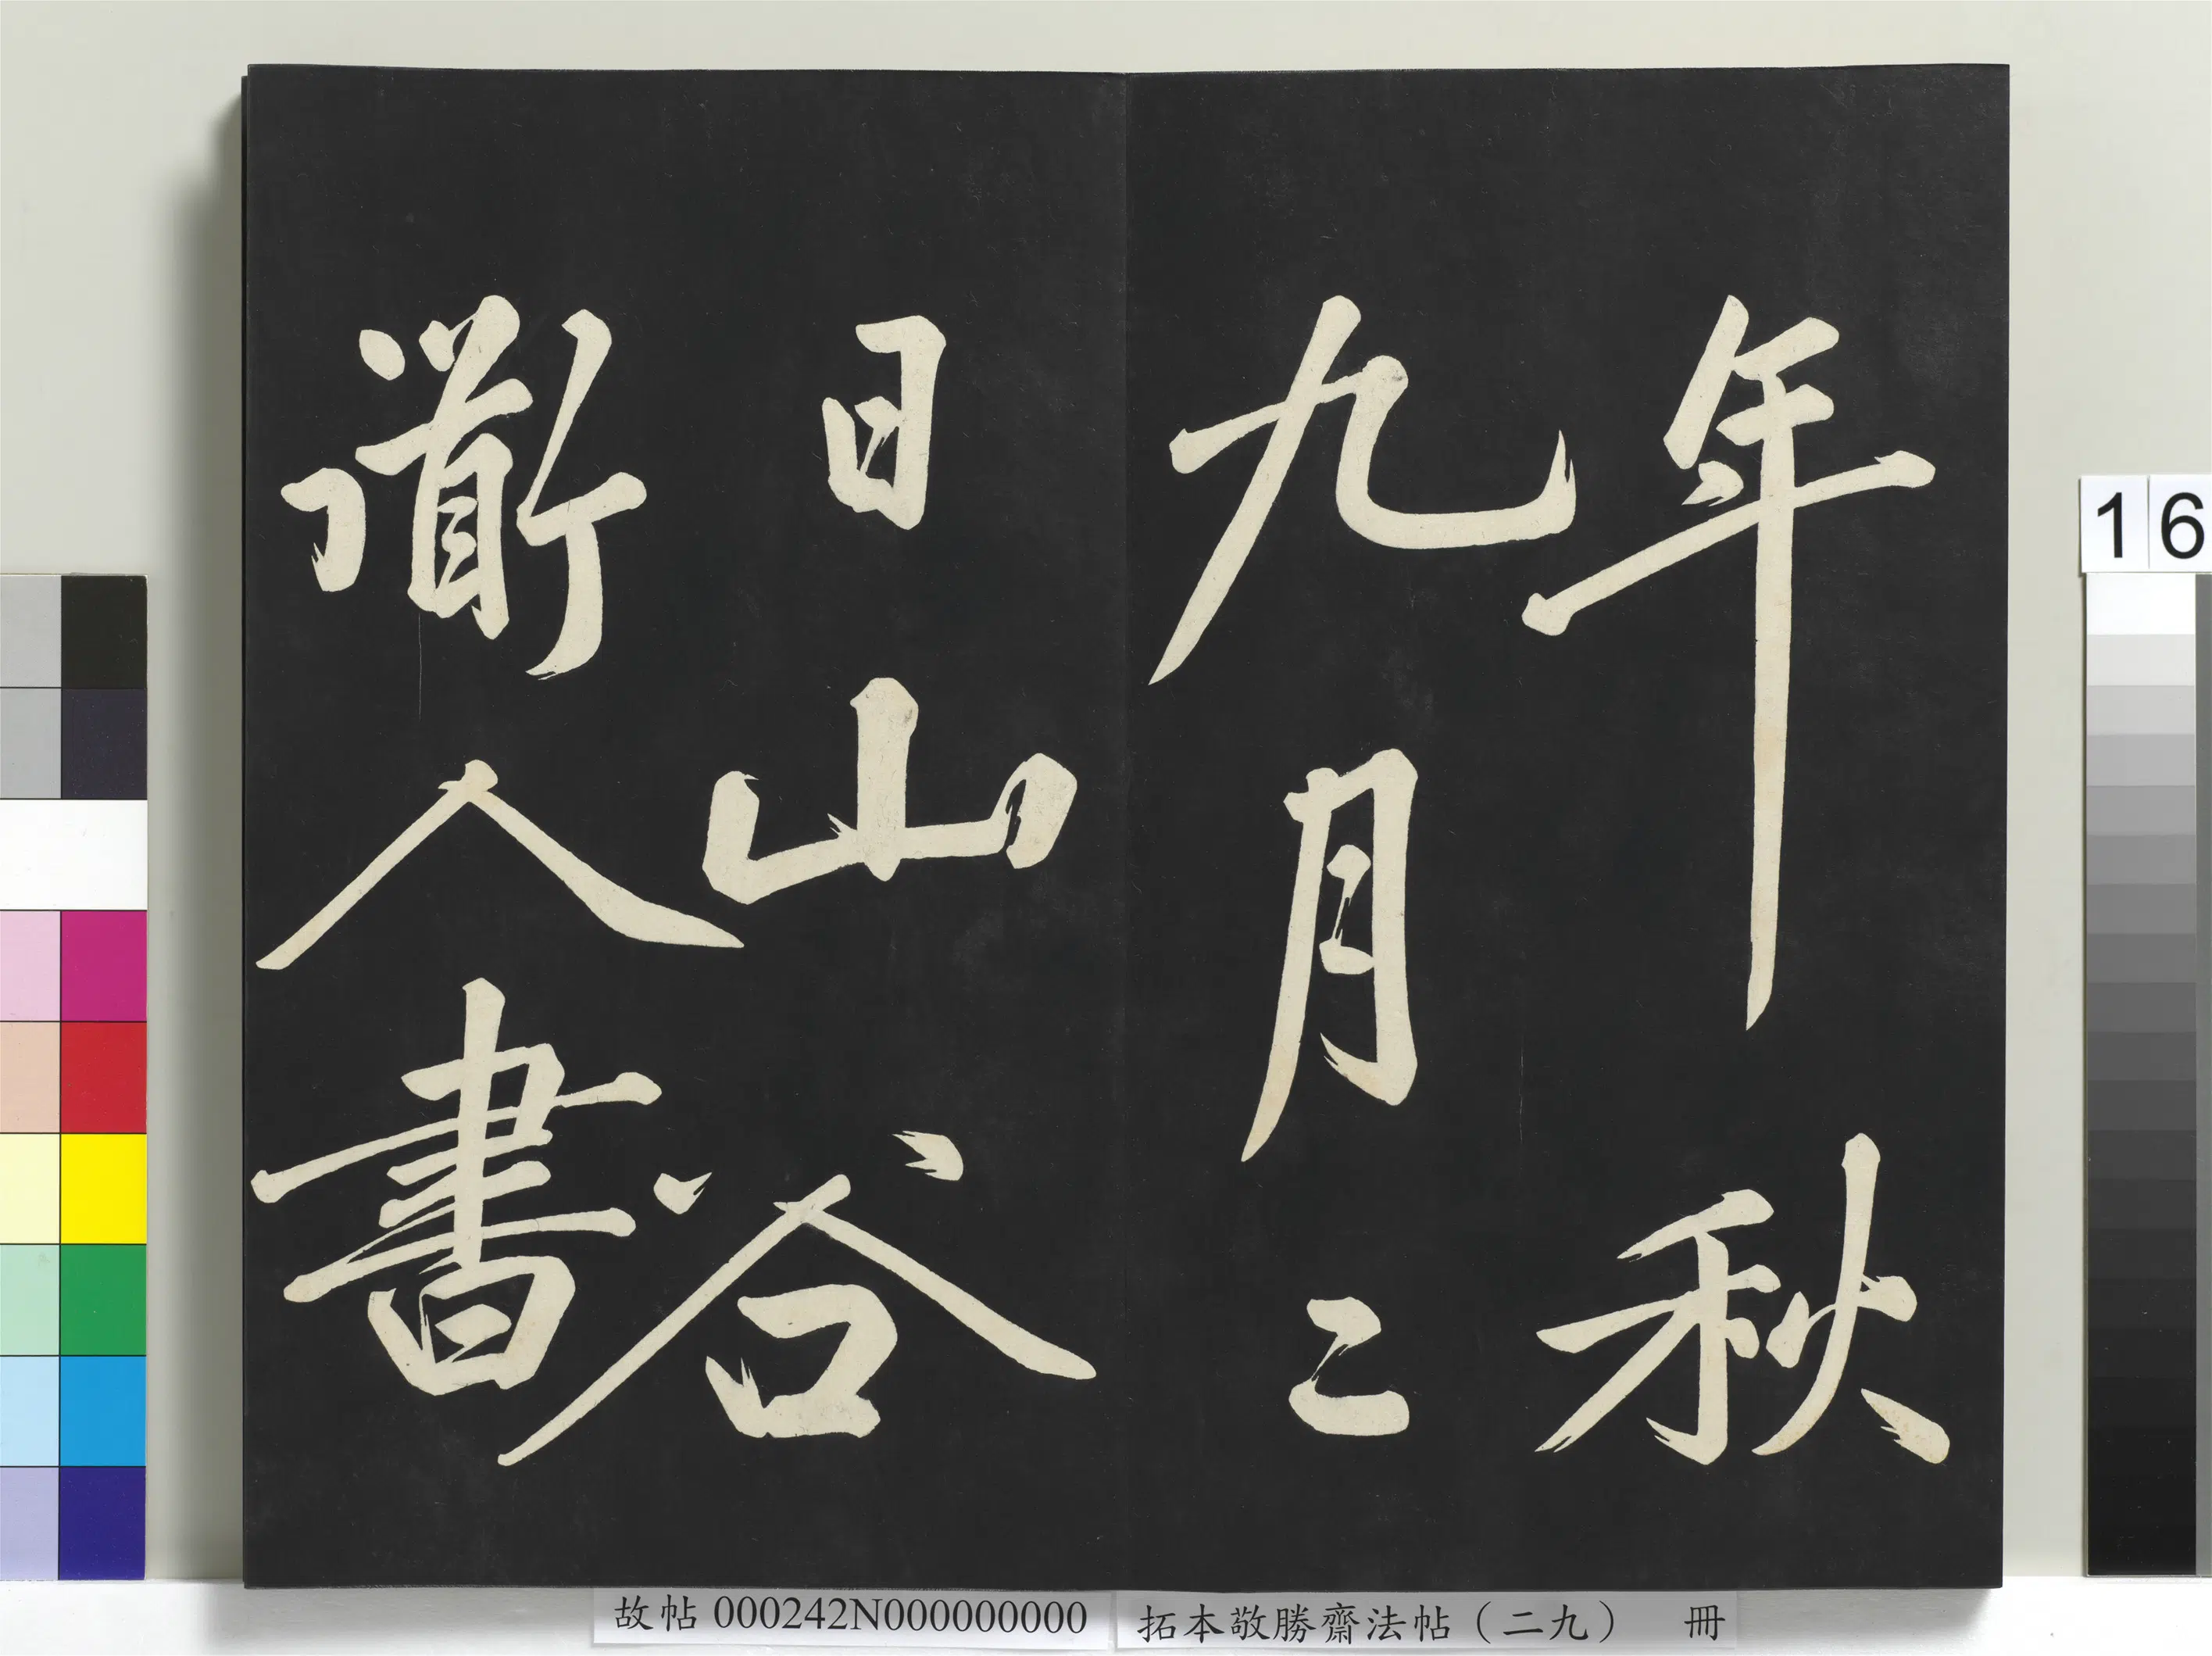 年秋
九月二
日山谷
道人書
16
故帖 000242N000000000
拓本敬勝齋法帖（二九） 冊